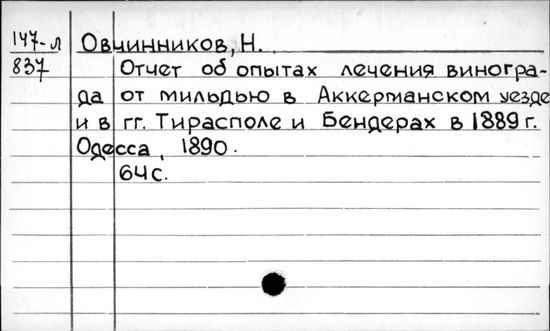 147-л Овчинников, Н.
837 Отчет об опытах лечения виногра-
да от мильдью в Аккерманском уезде
и в гг. Тирасполе и Бендерах в 1889 г.
Одесса, 1890.
64 с.